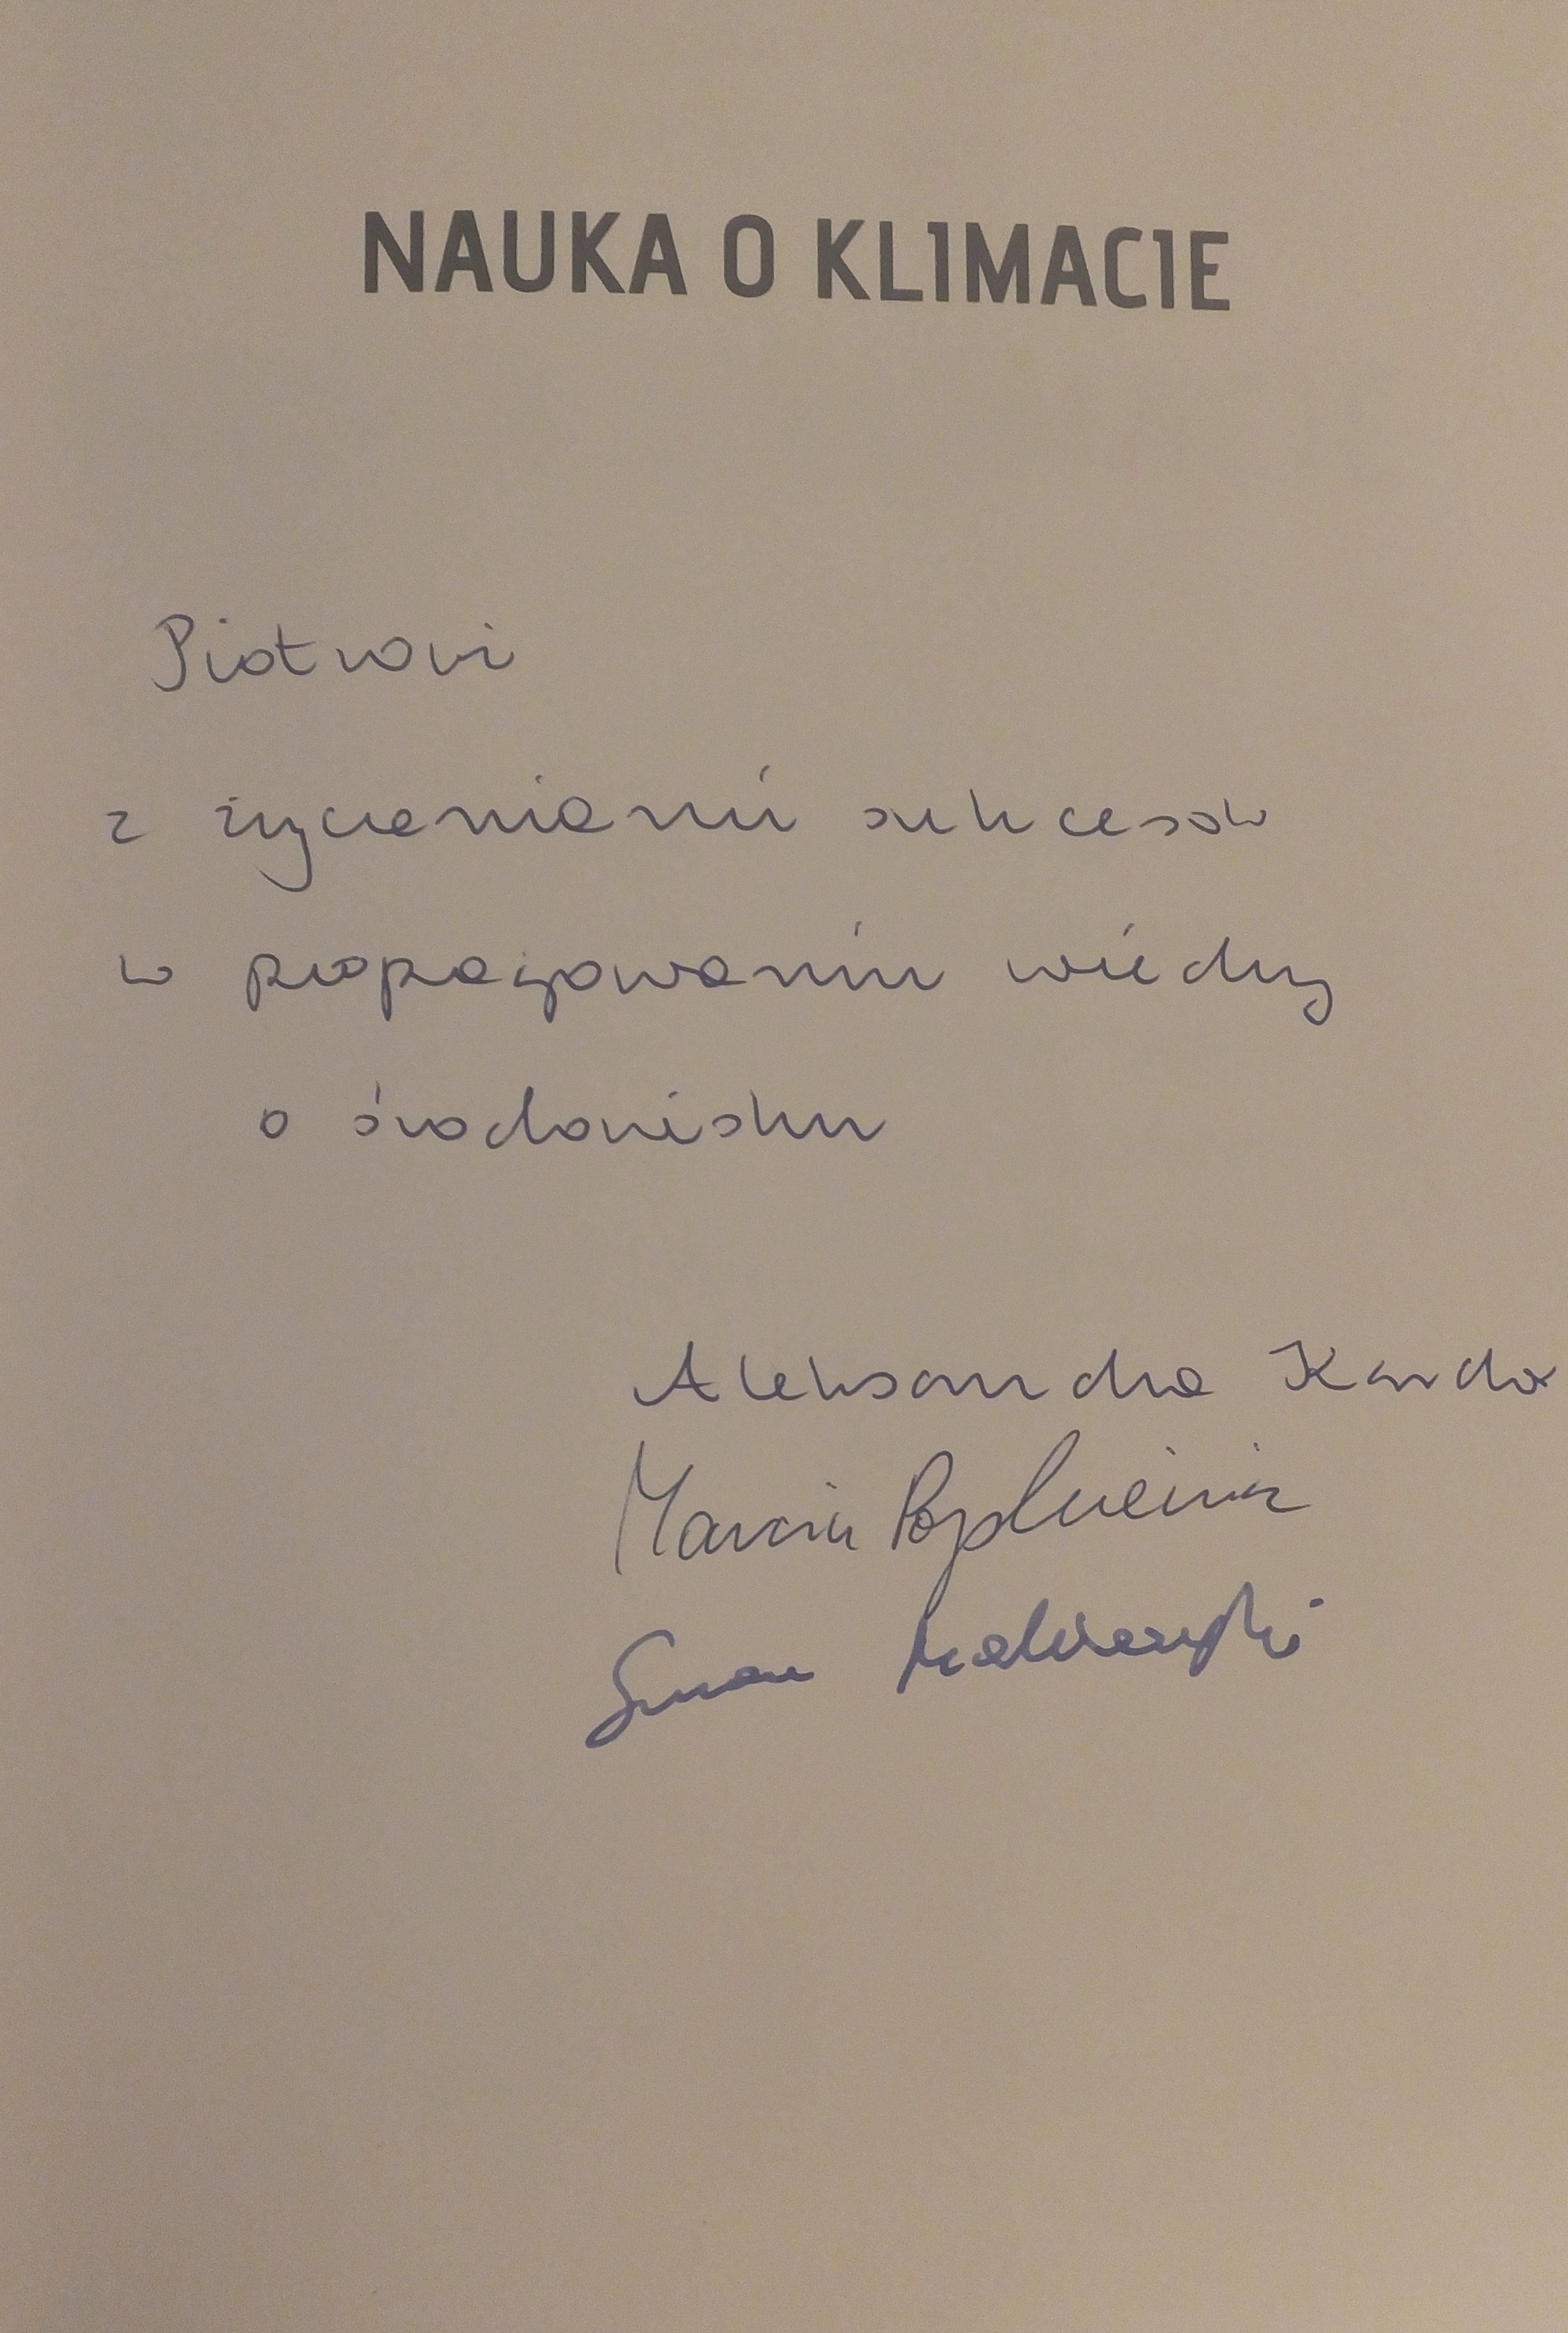 NAUKA O KLIMACIE
Piotrowi
z życzeniami sukcesów
w propagowaniu wiedzy
o środowisku
Aleksandra Kardaś
Marcin Popkiewicz
Szymon Malinowski